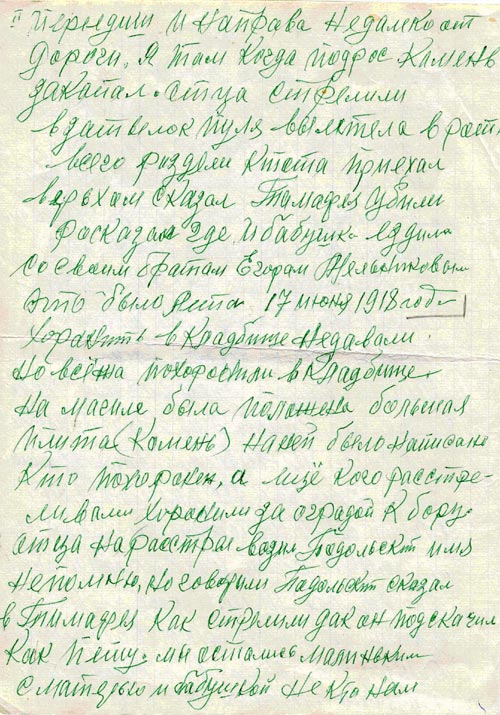 II перъедиш и направа недалеко от
дороги, я там когда подрос камень
закапал. отца стрелили
в затвелок пуля вылетела в рот
всего раздели кто то приехал
верьхам сказал Тимафея убили
расказал где и бабушка ездила
со своим братам Егорам Мельниковым
это было лета 17 июня 1918 года
хоранить в кладбище недавали.
но всёш похоронили в кладбище
на магиле была положена большая
плита (камень) на ней было написано
кто похоронен, а ищё кого расстре-
ливали хоронили за оградой к бору
отца на расстрел возил Подольскт имя
непомню, но говорили Подольскт сказал
в Тимафея как стрелили дак он подскачил
как петух. мы остались маленьким
с матерью и бабушкой некто нам